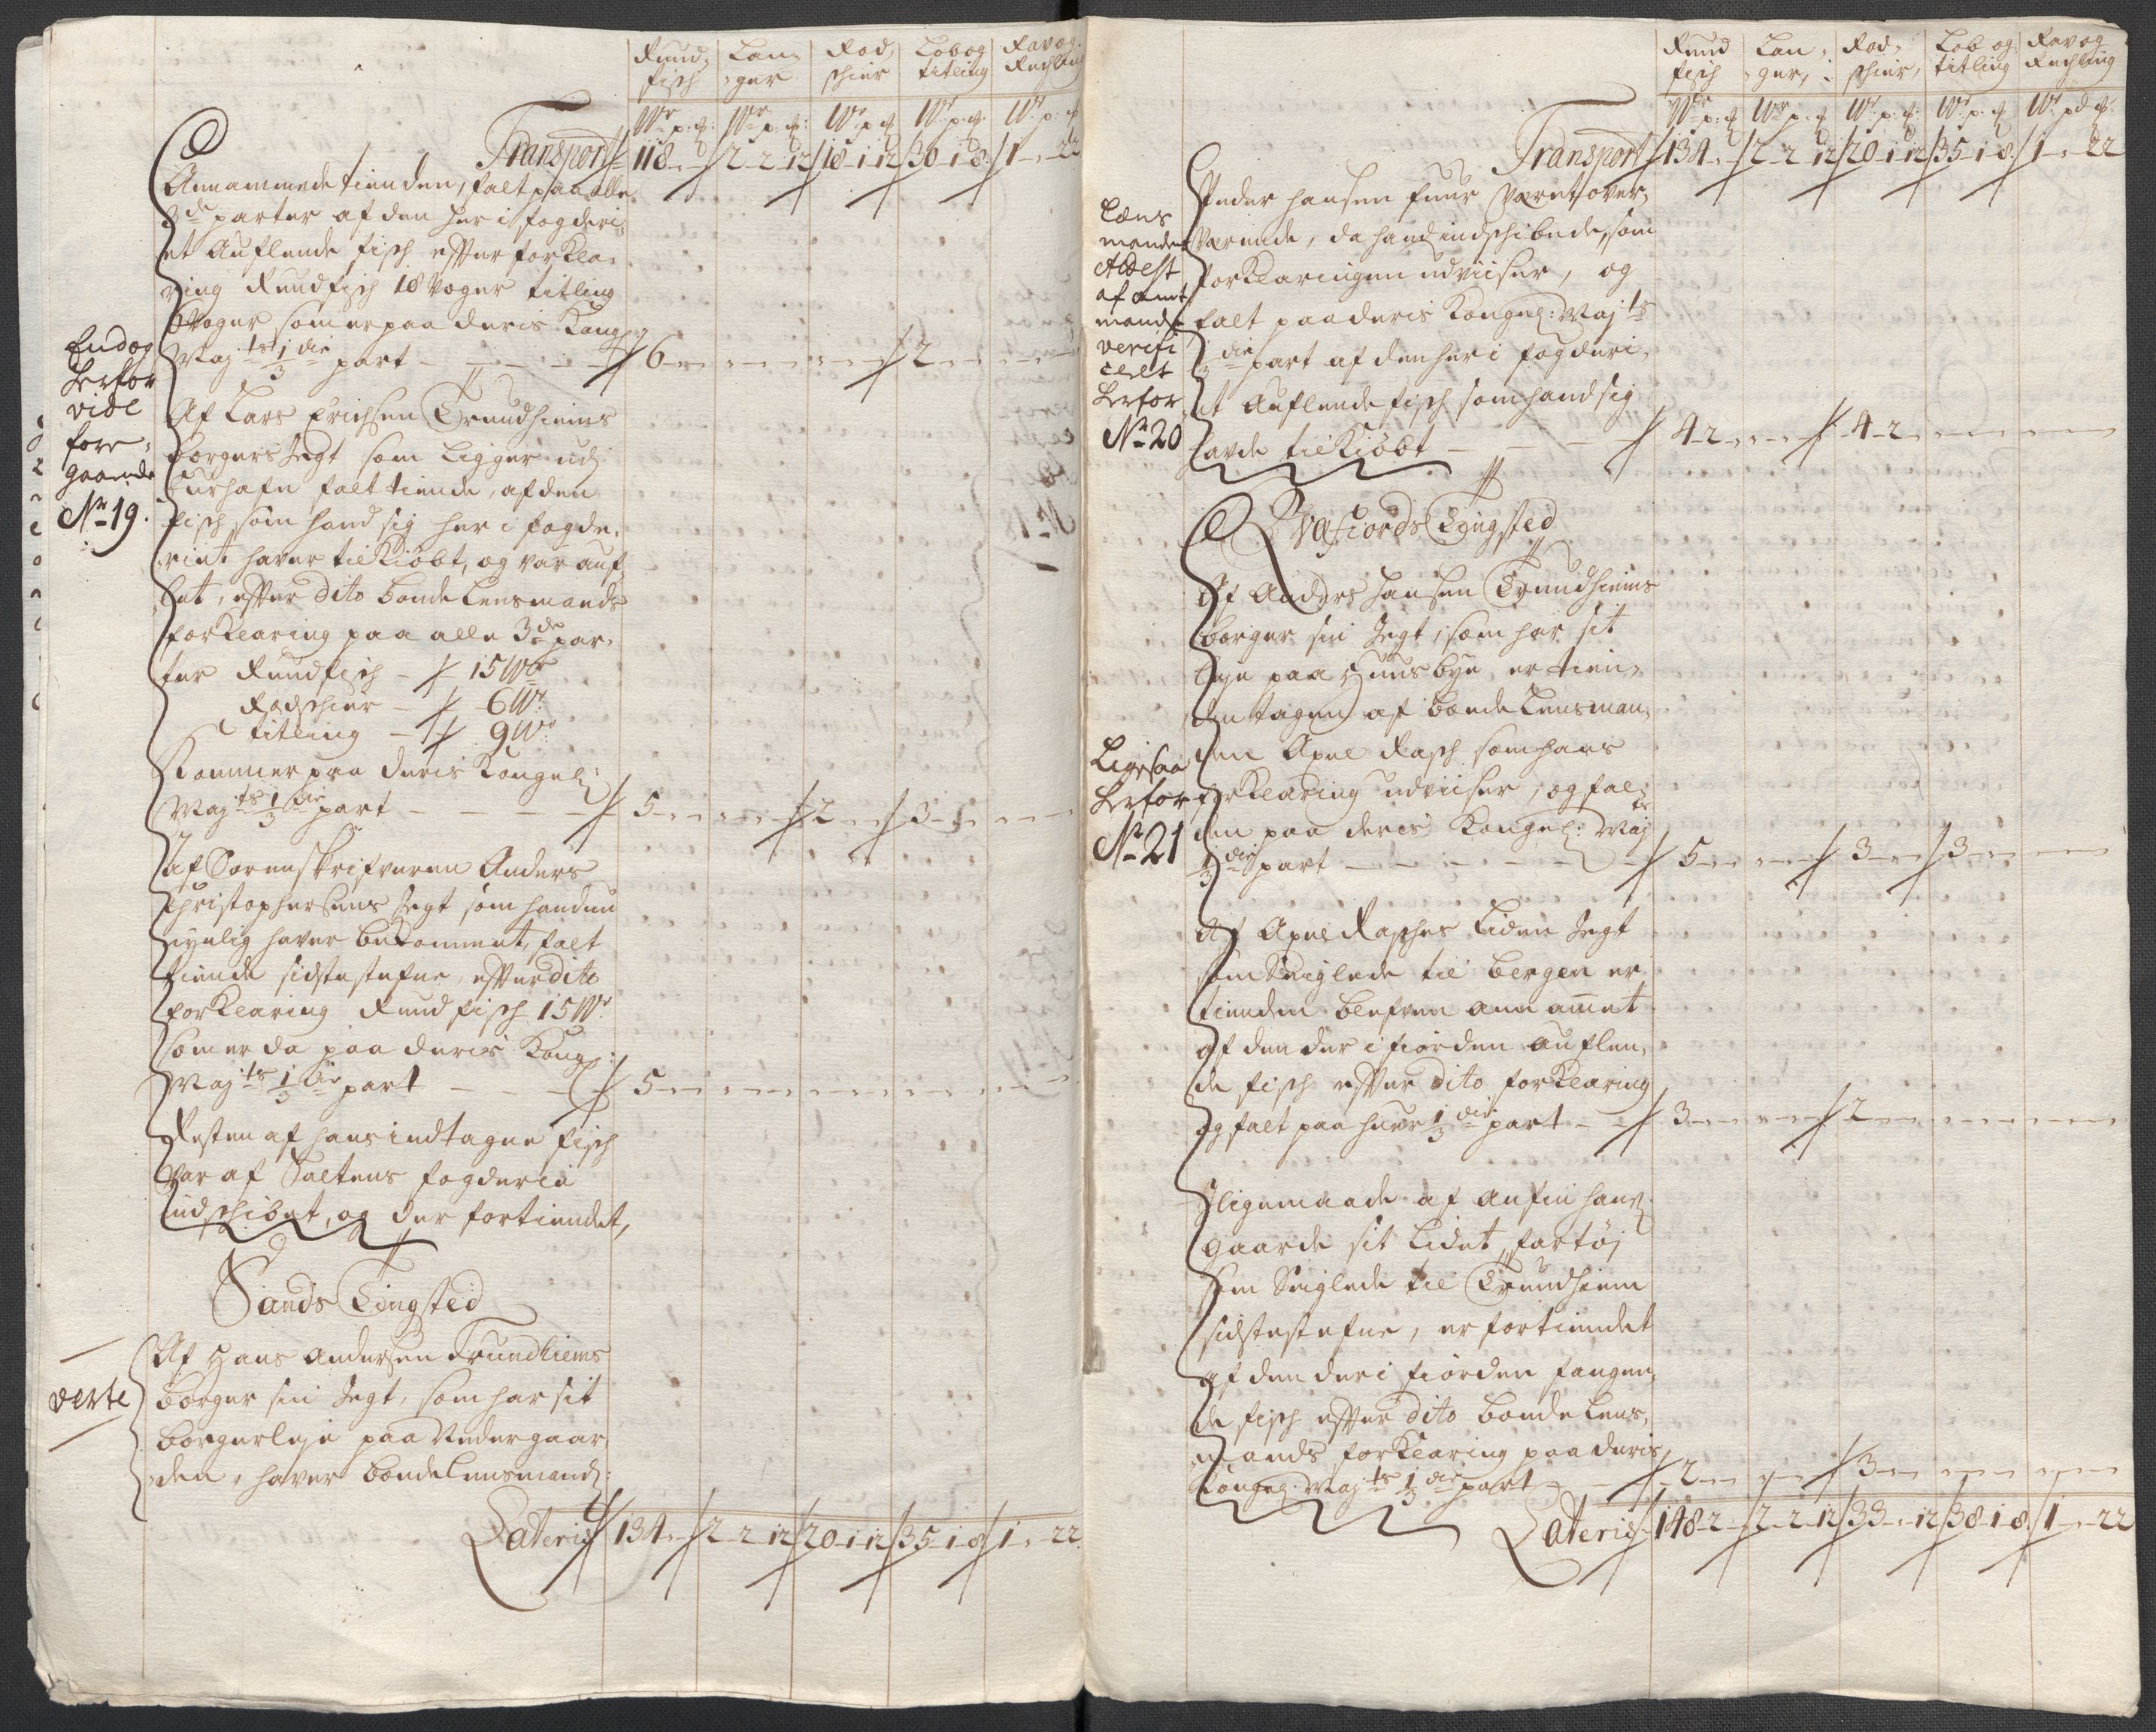 Rund- Lan- Rod- Lob og Rav og
fisch ger schier titling Rechling
Wr p: Wr p: Wr p Wr p. Wr p:
Transport 118 - - 2 - 2 - 12 18 - 1 - 12 30 - 1 - 8 1 - - 22
Annammede tienden, falt paa alle
3de parter af den her i fogderi-
et Auflende fisch efter forkla-
ring Rundfisch 18 Voger titling
6 Voger som er paa deris Kongl:
Maj:ts 1/3 die part 6 2
Endog
herfor
vide
fore-
gaaende
No 19.
Af Lars Erichsen Trundhiems
borgers Jegt som ligger udj
falt tiende, af den
fisch som hand sig her i fogde-
riet haver tilkiøbt, og var auf-
let, efter dito bonde Lensmands
forklaring paa alle 3de par-
ter Rundfisch - 15 Wr
Rodschier - 6 Wr
titling - 9 Wr
Kommer paa deris Kongel:
Maj:ts 1/3 die part 5 2 3
Af Sorenskrifveren Anders
Christophersens Jegt som hand nu
nyelig haver bekommet, falt
tiende sidste stefne, efter dito
forklaring Rundfisch 15 Wr
som er da paa deris Kongl:
Maj:ts 1/3 die part 5
Resten af hans indtagne fisch
var af Saltens fogderie
indschibet, og der fortiendet,
Sands Tingsted
Af Hans Andersen Trundhiems
borger sin Jegt, som har sit
borgerleje paa Nedergaar-
den, haver bonde Lensmand:
verte
Lateris 134 - - 2 - 2 - 12 20 - 1 - 12 35 - 1 - 8 1 - - 22
Rund Lan- Rod- Lob og Rav og
fisch ger, schier, titling Rechling
Wr p: Wr p. Wr p: Wr p. Wr pd
Transport 134 - - 2 - 2 - 12 20 - 1 - 12 35 - 1 - 8 1 - - 22
Læns
mandens
Attest
af amt
manden
verifi
cerit
herfor
No 20
Peder Hansen fuur været over-
værende, da hand indschibede, som
forklaringen udviiser, og
falt paa deris Kongel: Maj:ts
1/3 die part af den her i fogderi-
et Auflende fisch som hand sig
hafde tilkiøbt 4 - 2 4 - 2
Hvafiords Tingsted
Af Anders Hansen Trundhiems
borger sin Jegt, som har sit
leje paa Huusbye er tien-
den tagen af bonde Lensman-
den Axel Rasch som hans
forklaring udviiser, og fal-
den paa deris Kongel: Maj:ts
1/3 die part 5 3 3
Ligesaa
herfor
No 21
Af Axel Rasches liden Jegt
som Seiglede til bergen er
tienden blefven annammet
af den der i fiorden Auflen-
de fisch efter dito forklaring
og falt paa her 1/3 die part 3 2
Iligemaade af Anfin
gaards sit lidet fartøj
som Seiglede til Trundhiem
sidste stefne, er fortiendet
af den der i fiorden fangen-
de fisch efter dito bonde Lens-
mands forklaring paa deris
Kongel. Maj:ts 1/3 die part 2 3
Lateris 148 - 2 2 - 2 - 12 33 - - 12 38 - 1 - 8 1 - - 22